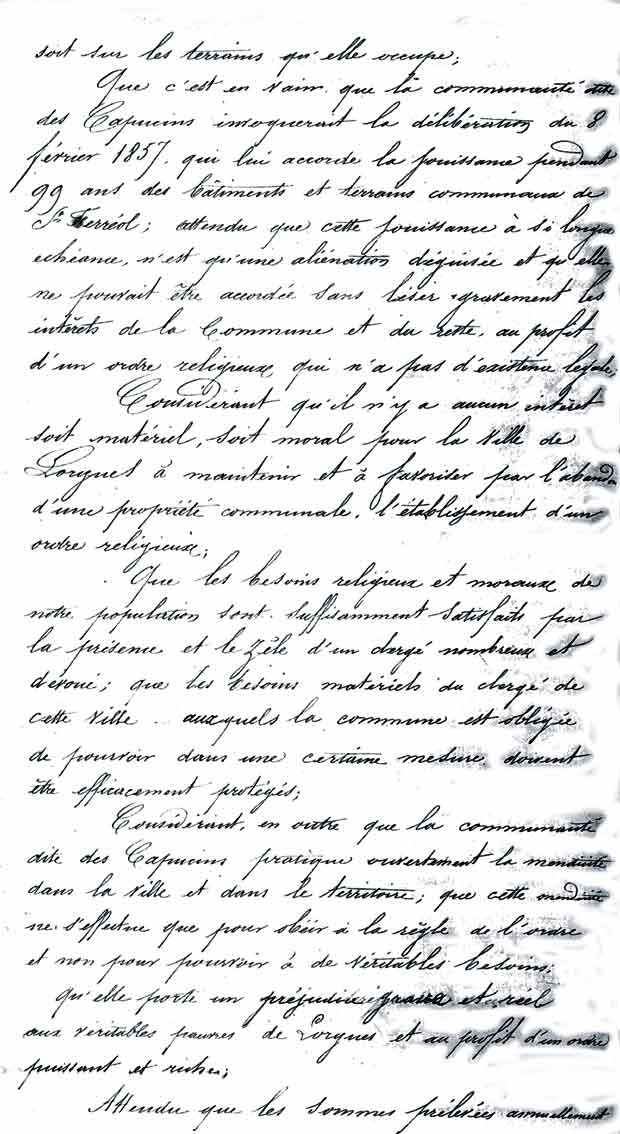 soit sur les terrains qu'elle occupe;
Que c'est en vain que la communauté dite
des Capucins invoquerait la délibération du 8
février 1857. qui lui accorde la jouissance pendant
99 ans des bâtiments et terrains communaux de
St Ferréol; attendu que cette jouissance à si longue
echéance, n'est qu'une aliénation déguisée et qu'elle
ne pouvait être accordée sans léser gravement les
intérêts de la Commune et du reste, au profit
d'un ordre religieux, qui n'a pas d'existence légale;
Considérant qu'il n'y a aucun intérêt
soit matériel, soit moral pour la ville de
Lorgues à maintenir et à favoriser par l'abandon
d'une propriété communale, l'établissement d'un
ordre religieux;
Que les besoins religieux et moraux de
notre population sont suffisamment satisfaits par
la présence et le zèle d'un clergé nombreux et
dévoué; que les besoins matériels du clergé de
cette ville auxquels la commune est obligée
de pourvoir dans une certaine mesure doivent
être efficacement protégés;
Considérant, en outre que la communauté
dite des Capucins pratique ouvertement la mendicité
dans la ville et dans le territoire; que cette mendicité
ne s'effectue que pour obéir à la règle de l'ordre
et non pour pourvoir à de véritables besoins;
qu'elle porte un préjudice grave et réel
aux veritables pauvres de Lorgues et au profit d'un ordre
puissant et riche;
Attendu que les sommes prélevées annuellement